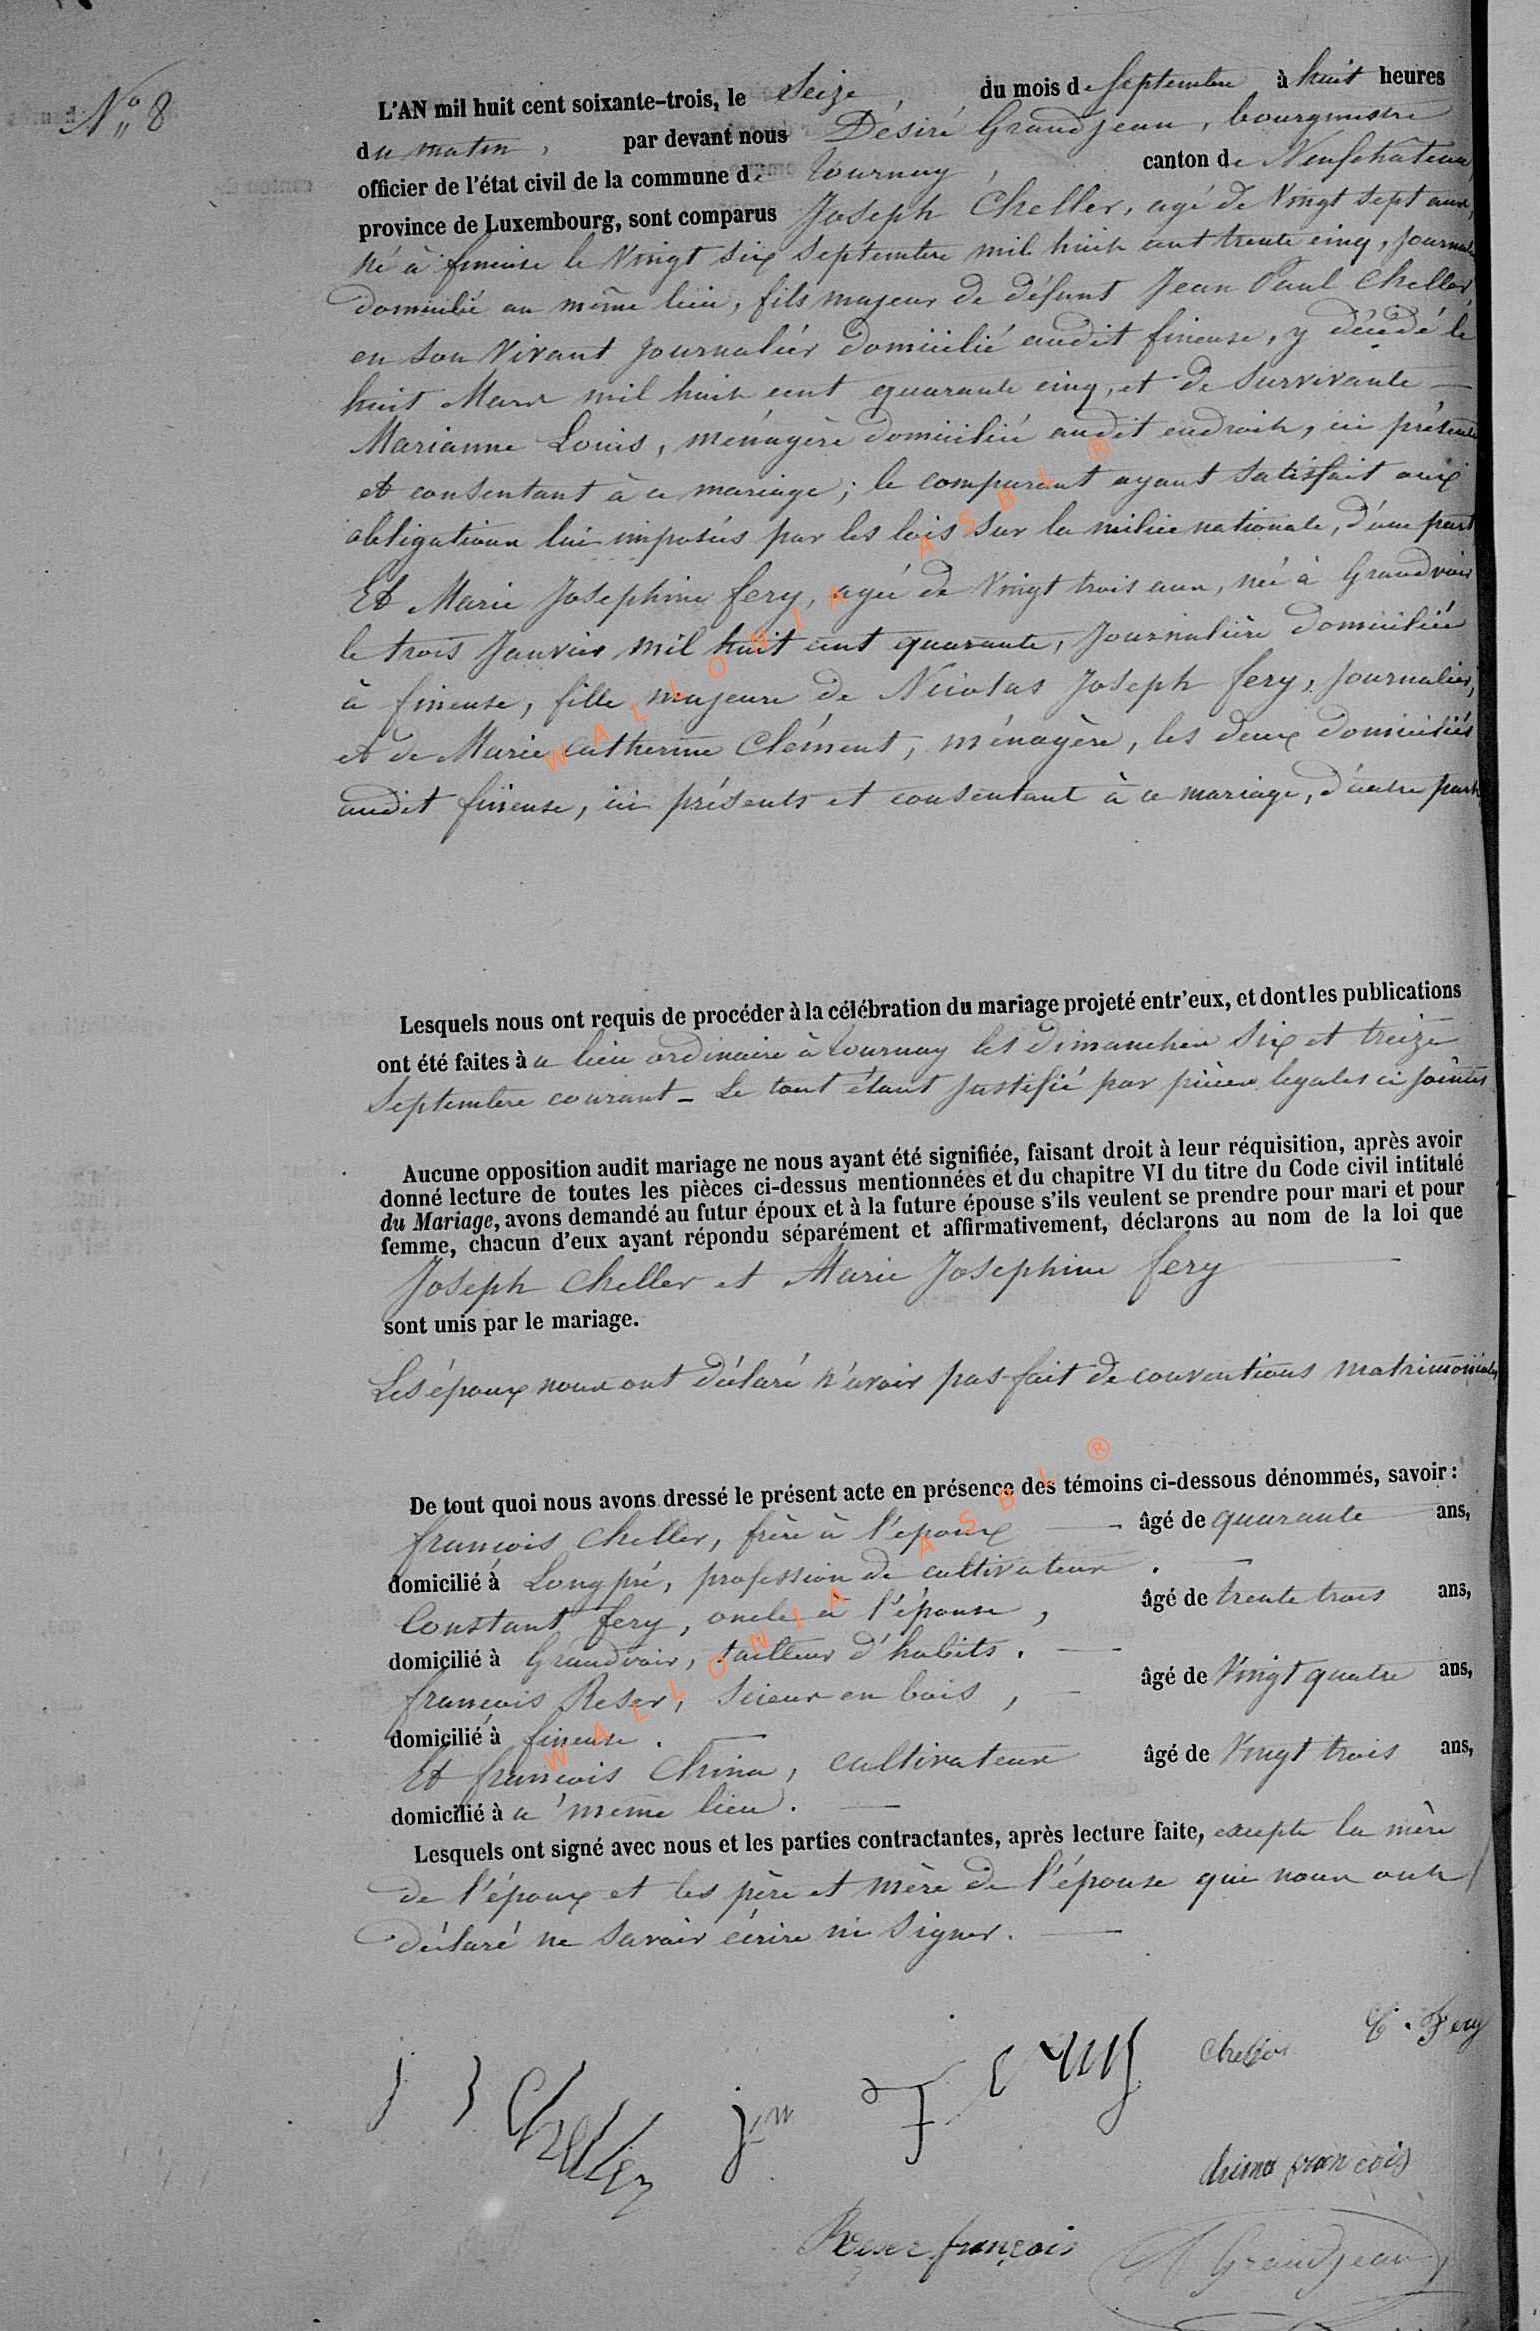 N° 8
L'AN mil huit cent soixante-trois, le Seize, du mois de Septembre à huit heures
du matin, par devant nous Désiré Grandjean, bourgmestre
officier de l'état civil de la commune de Tournay, canton de Neufchateau,
province de Luxembourg, sont comparus Joseph Cheller, agé de Vingt sept ans,
né à fineuse le Vingt six Septembre mil huit cent trente cinq, journalier
domicilié au même lieu, fils majeur de défunt Jean Paul Cheller,
en son Vivant journalier domicilié audit fineuse, y décédé le
huit Mars mil huit cent quarante cinq, et de Survivante —
Marianne Louis, ménagère domiciliée audit endroit, ici présente
et consentant à ce mariage; le comparant ayant Satisfait aux
obligations lui imposées par les lois Sur la milice nationale, d'une part
Et Marie Josephine fery, agée de Vingt trois ans, née à Grandvoir
le trois Janvier mil huit cent quarante, Journalière domiciliée
à fineuse, fille majeure de Nicolas Joseph fery, journalier,
et de Marie Catherine Clément, ménagère, les deux domiciliés
audit fineuse, ici présents et consentant à ce mariage, d'autre part
Lesquels nous ont requis de procéder à la célébration du mariage projeté entr'eux, et dont les publications
ont été faites à ce lieu ordinaire à Tournay les dimanches Six et treize
Septembre courant – Le tout étant justifié par pièces legales ci jointes
Aucune opposition audit mariage ne nous ayant été signifiée, faisant droit à leur réquisition, après avoir
donné lecture de toutes les pièces ci-dessus mentionnées et du chapitre VI du titre du Code civil intitulé
du Mariage, avons demandé au futur époux et à la future épouse s'ils veulent se prendre pour mari et pour
femme, chacun d'eux ayant répondu séparément et affirmativement, déclarons au nom de la loi que
Joseph Cheller et Marie Josephine fery —
sont unis par le mariage.
Les époux nous ont déclaré n'avoir pas fait de conventions matrimoniales
De tout quoi nous avons dressé le présent acte en présence des témoins ci-dessous dénommés, savoir :
françois Cheller, frère à l'époux — âgé de quarante ans,
domicilié à Longpré, profession de cultivateur. —
Constant fery, oncle à l'épouse, âgé de trente trois ans,
domicilié à Grandvoir, tailleur d'habits. —
françois Reser, Scieur en bois, — âgé de Vingt quatre ans,
domicilié à fineuse. —
Et françois China, cultivateur âgé de Vingt trois ans,
domicilié à ce même lieu. —
Lesquels ont signé avec nous et les parties contractantes, après lecture faite, excepté la mère
de l'époux et les père et mère de l'épouse qui nous ont
déclaré ne Savoir écrire ni Signer. —
Cheller C. Fery
J J Cheller
China françois
Reser françois Grandjean
WALLONIA ASBL ®
WALLONIA ASBL ®